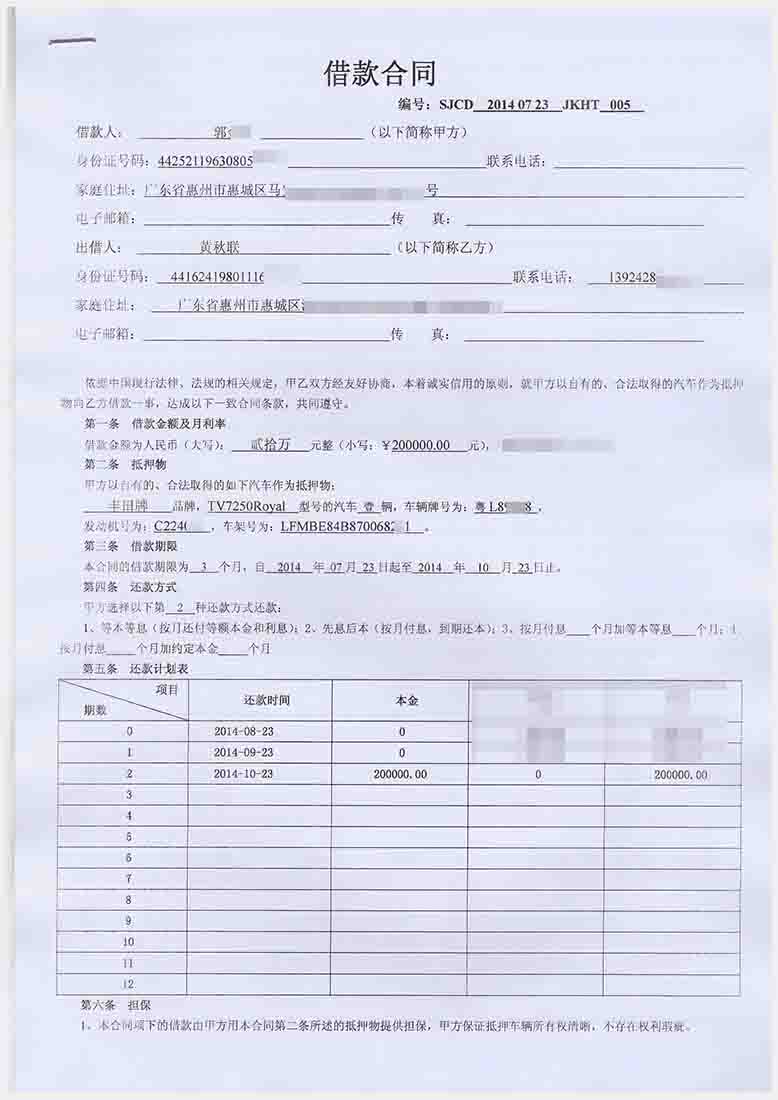 借款合同
编号：SJCD 2014 07 23 JKHT 005
借款人： 郭 （以下简称甲方）
身份证号码：44252119630805 联系电话：
家庭住址：广东省惠州市惠城区马 号
电子邮箱： 传 真：
出借人： 黄秋联 （以下简称乙方）
身份证号码：44162419801116 联系电话： 1392428
家庭住址： 广东省惠州市惠城区
电子邮箱： 传 真：
依据中国现行法律、法规的相关规定，甲乙双方经友好协商，本着诚实信用的原则，就甲方以自有的、合法取得的汽车作为抵押
物向乙方借款一事，达成以下一致合同条款，共同遵守。
第一条 借款金额及月利率
借款金额为人民币（大写）： 贰拾万 元整（小写：￥200000.00 元），
第二条 抵押物
甲方以自有的、合法取得的如下汽车作为抵押物：
丰田牌 品牌，TV7250Royal 型号的汽车 壹 辆，车辆牌号为：粤 L8 8 ，
发动机号为：C224 ，车架号为：LFMBE84B8700682 1 。
第三条 借款期限
本合同的借款期限为 3 个月，自 2014 年 07 月 23 日起至 2014 年 10 月 23 日止。
第四条 还款方式
甲方选择以下第 2 种还款方式还款：
1、等本等息（按月还付等额本金和利息）；2、先息后本（按月付息，到期还本）；3、按月付息____个月加等本等息____个月；4
按月付息____个月加约定本金____个月
第五条 还款计划表
项目 期数 还款时间 本金
0 2014-08-23 0
1 2014-09-23 0
2 2014-10-23 200000.00 0 200000.00
3
4
5
6
7
8
9
10
11
12
第六条 担保
1、本合同项下的借款由甲方用本合同第二条所述的抵押物提供担保，甲方保证抵押车辆所有权清晰，不存在权利瑕疵。